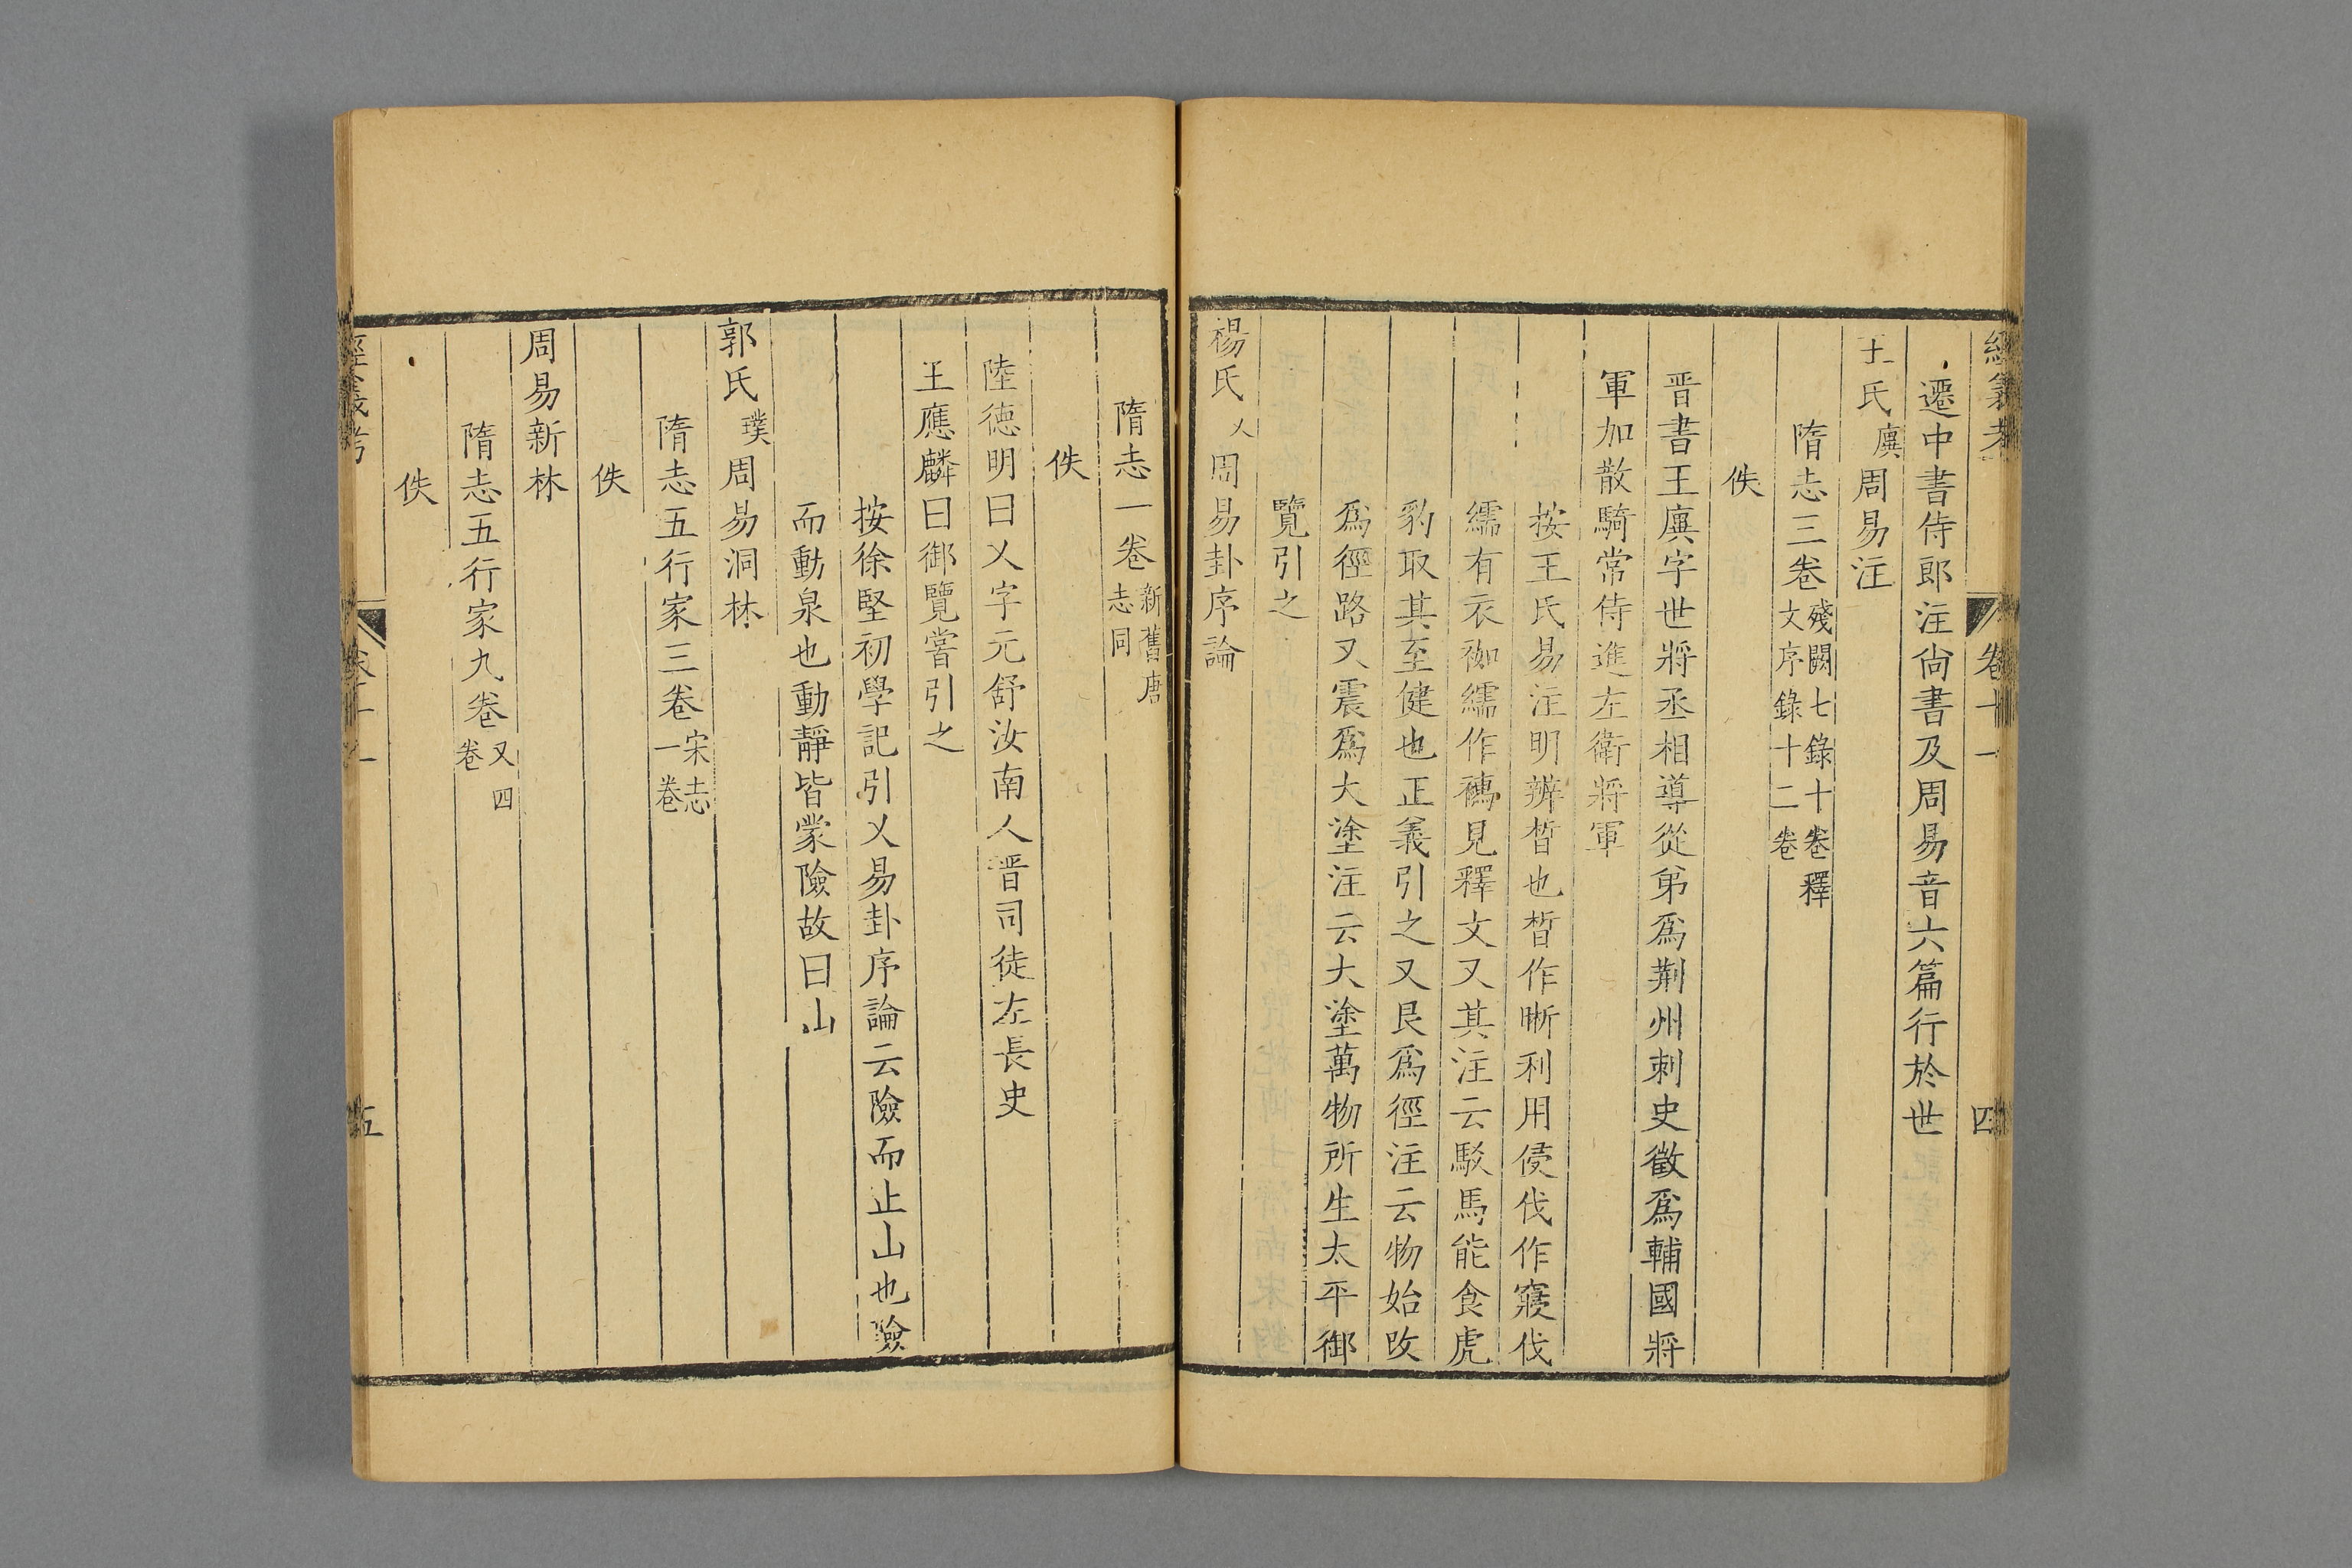 經義考 卷十一 四
遷中書侍郎注尙書及周易音六篇行於世
王氏廙周易注
隋志三卷殘闕七錄十卷釋文序錄十二卷
佚
晋書王廙字世將丞相導從弟爲荆州刺史徵爲輔國將
軍加散騎常侍進左衛將軍
按王氏易注明辨晢也晢作晣利用侵伐作寢伐
繻有衣袽繻作襦見釋文又其注云駁馬能食虎
豹取其至健也正義引之又艮爲徑注云物始改
爲徑路又震爲大塗注云大塗萬物所生太平御
覽引之
楊氏乂周易卦序論
隋志一卷新舊唐志同
佚
陸德明曰乂字元舒汝南人晋司徒左長史
王應麟曰御覽嘗引之
按徐堅初學記引乂易卦序論云險而止山也險
而動泉也動靜皆蒙險故曰山
郭氏璞周易洞林
隋志五行家三卷宋志一卷
佚
周易新林
隋志五行家九卷又四卷
佚
經義考 卷十一 五